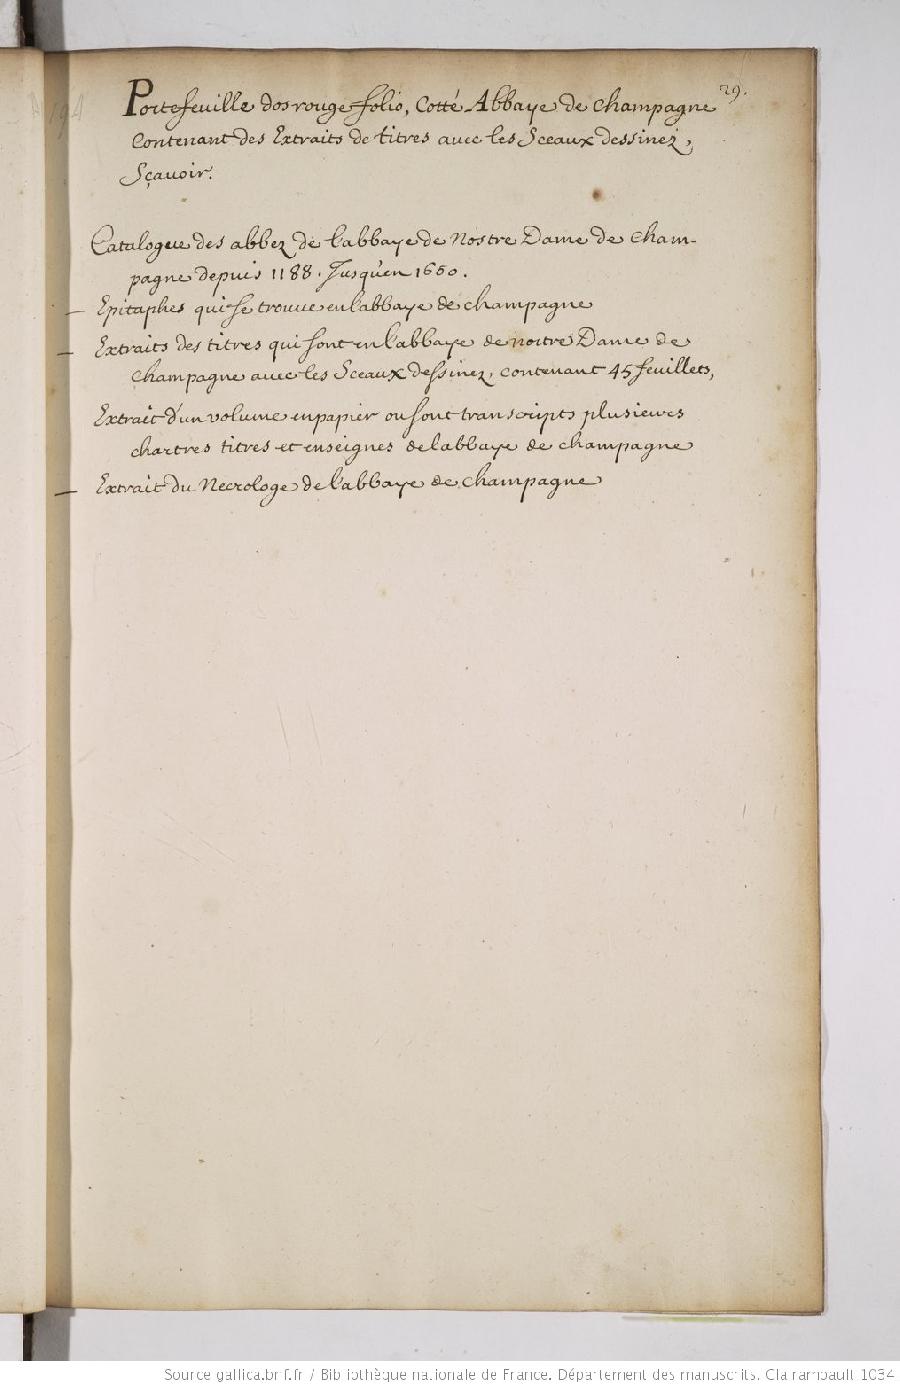 29.
Portefeuille dos rouge folio, Cotté Abbaye de Champagne
Contenant des Extraits de titres avec les Sceaux dessinez,
Sçavoir.
Catalogue des abbez de l'abbaye de Nostre Dame de Cham-
pagne depuis 1188. Jusqu'en 1650.
Epitaphes qui se trouve en l'abbaye de Champagne
Extraits des titres qui sont en l'abbaye de nostre Dame de
Champagne avec les Sceaux dessinez, contenant 45 feuillets,
Extrait d'un volume en papier ou sont transcripts plusieurs
chartres titres et enseignes de l'abbaye de Champagne
Extrait du Necrologe de l'abbaye de Champagne
Source gallica.bnf.fr / Bibliothèque nationale de France. Département des manuscrits. Clairambault 1034